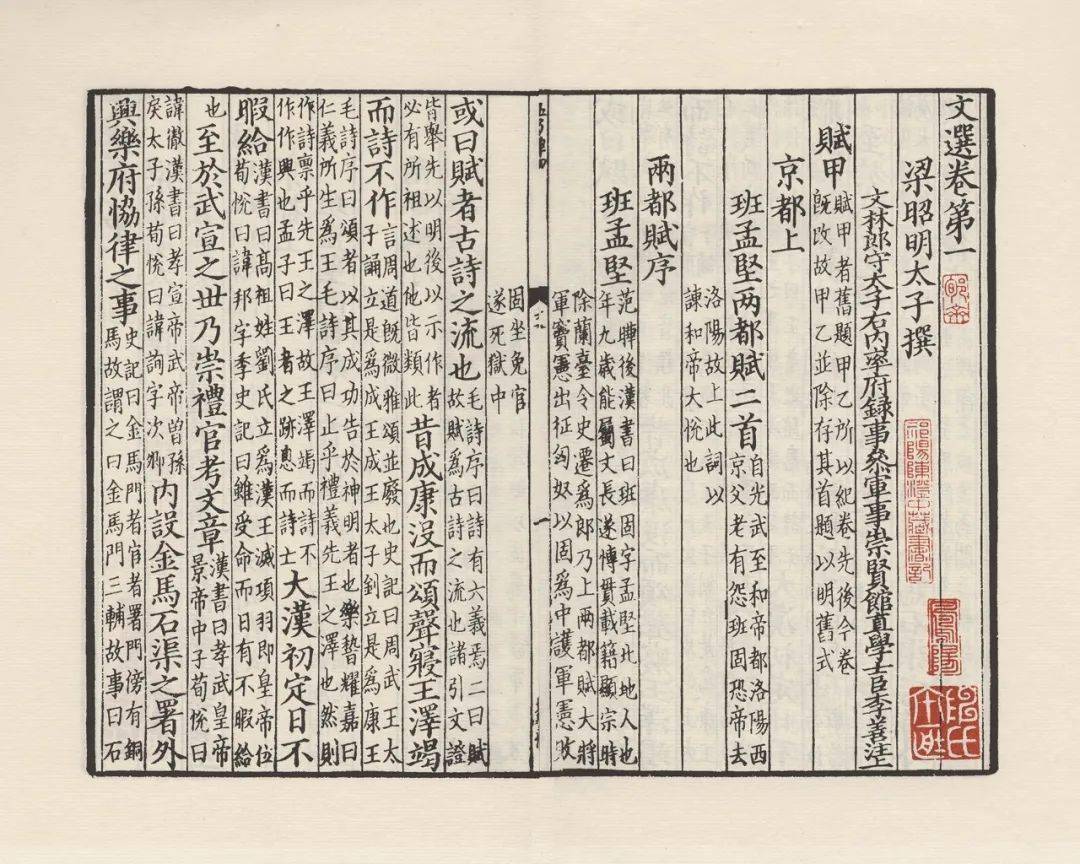 文選卷第一
梁昭明太子撰
文林郎守太子右内率府録事參軍事崇賢館直學士臣李善注
賦甲
賦甲者舊題甲乙所以紀卷先後今卷
既改故甲乙並除存其首題以明舊式
京都上
班孟堅兩都賦二首
自光武至和帝都洛陽西
京父老有怨班固恐帝去
洛陽故上此詞以
諫和帝大悅也
兩都賦序
班孟堅
范曄後漢書曰班固字孟堅北地人也
年九歲能屬文長遂博貫載籍顯宗時
除蘭臺令史遷爲郎乃上兩都賦大將
軍竇憲出征匈奴以固爲中護軍憲敗
一
固坐免官
遂死獄中
或曰賦者古詩之流也
毛詩序曰詩有六義焉二曰賦
故賦爲古詩之流也諸引文證
皆舉先以明後以示作者
必有所祖述也他皆類此
昔成康沒而頌聲寢王澤竭
而詩不作
言周道既微雅頌並廢也史記曰周武王太
子誦立是爲成王成王太子釗立是爲康王
毛詩序曰頌者以其成功告於神明者也樂嵇耀嘉曰
仁義所生爲王毛詩序曰止乎禮義先王之澤也然則
作詩稟乎先王之澤故王澤竭而詩不
作作興也孟子曰王者之跡息而詩士
大漢初定日不
暇給
漢書曰髙祖姓劉氏立爲漢王滅項羽即皇帝位
荀悅曰諱邦字季史記曰雖受命而日有不暇給
也
至於武宣之世乃崇禮官考文章
漢書曰孝武皇帝
景帝中子荀悅曰
諱徹漢書曰孝宣帝武帝曾孫
戾太子孫荀悅曰諱詢字次卿
內設金馬石渠之署外
興樂府協律之事
史記曰金馬門者宦者署門傍有銅
馬故謂之曰金馬門三輔故事曰石
郇齋
祁陽陳澄中藏書記